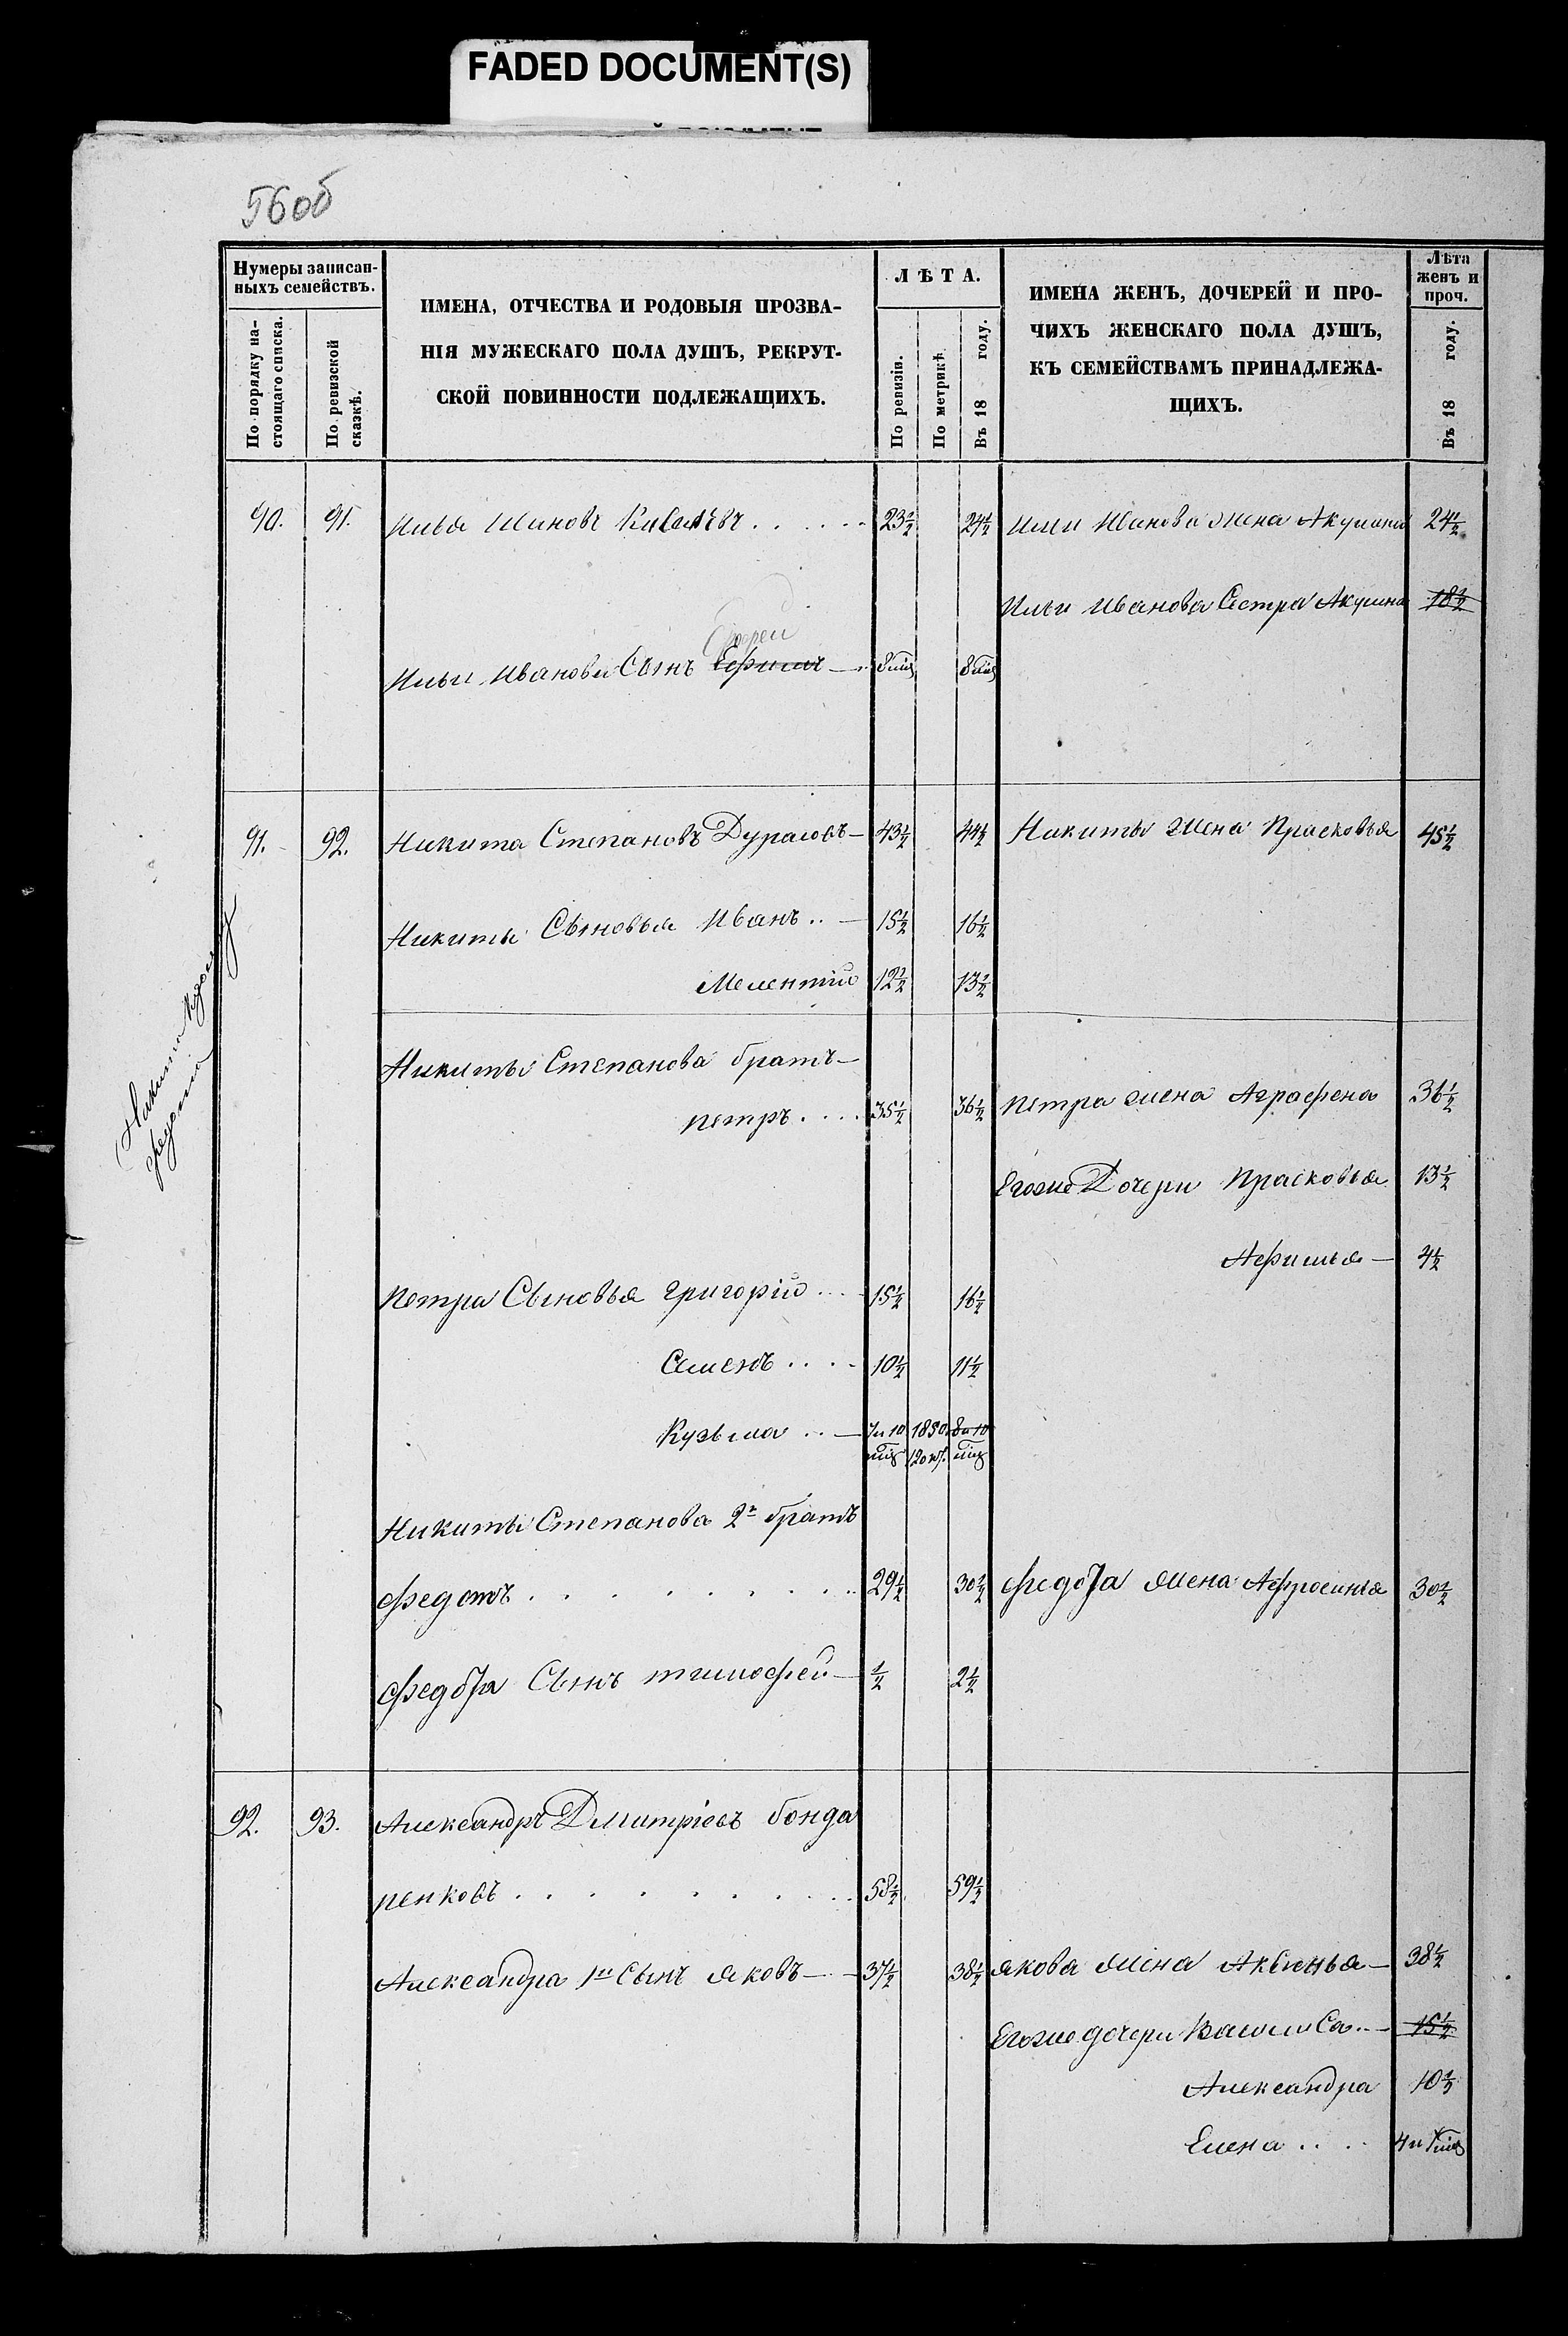 FADED DOCUMENT(S)
56об
Нумеры записан-
ныхъ семействъ.
По порядку на-
стоящаго списка.
По ревизской
сказкѣ.
ИМЕНА, ОТЧЕСТВА И РОДОВЫЯ ПРОЗВА-
НІЯ МУЖЕСКАГО ПОЛА ДУШЪ, РЕКРУТ-
СКОЙ ПОВИННОСТИ ПОДЛЕЖАЩИХЪ.
ЛѢТА.
По ревизіи.
По метрикѣ.
Въ 18 году.
ИМЕНА ЖЕНЪ, ДОЧЕРЕЙ И ПРО-
ЧИХЪ ЖЕНСКАГО ПОЛА ДУШЪ,
КЪ СЕМЕЙСТВАМЪ ПРИНАДЛЕЖА-
ЩИХЪ.
Лѣта
женъ и
проч.
Въ 18 году.
90. 91. Илья Ивановъ 23½ 24½ Ильи Иванова жена Акулина 24½
Ильи Иванова Сестра Акулина 18½
Ильи Иванова Сынъ Ефимъ
91. 92. Никита Степановъ 43½ 44½ Никиты жена Прасковья 45½
Никиты Сыновья Иванъ .. 15½ 16½
Мелентий 12½ 13½
Никиты Степанова братъ
петръ .... 35½ 36½ петра жена Аграфена 36½
Егоже Дочери Прасковья 13½
Афимья 4½
Петра Сыновья григорій ... 15½ 16½
Семенъ .... 10½ 11½
Кузьма .. 7 и 10 1850 8 и 10
Никиты Степанова 2й братъ
федотъ ......... 29½ 30½ федота жена Афросинья 30½
федота Сынъ тимофей ½ 2½
92. 93. Александръ Дмитріевъ бонда
ренковъ ........ 58½ 59½
Александра 1й Сынъ яковъ 37½ 38½ якова жена Аксенья 38½
Егоже дочери ВасилиСа 15½
Александра 10½
Елена ....